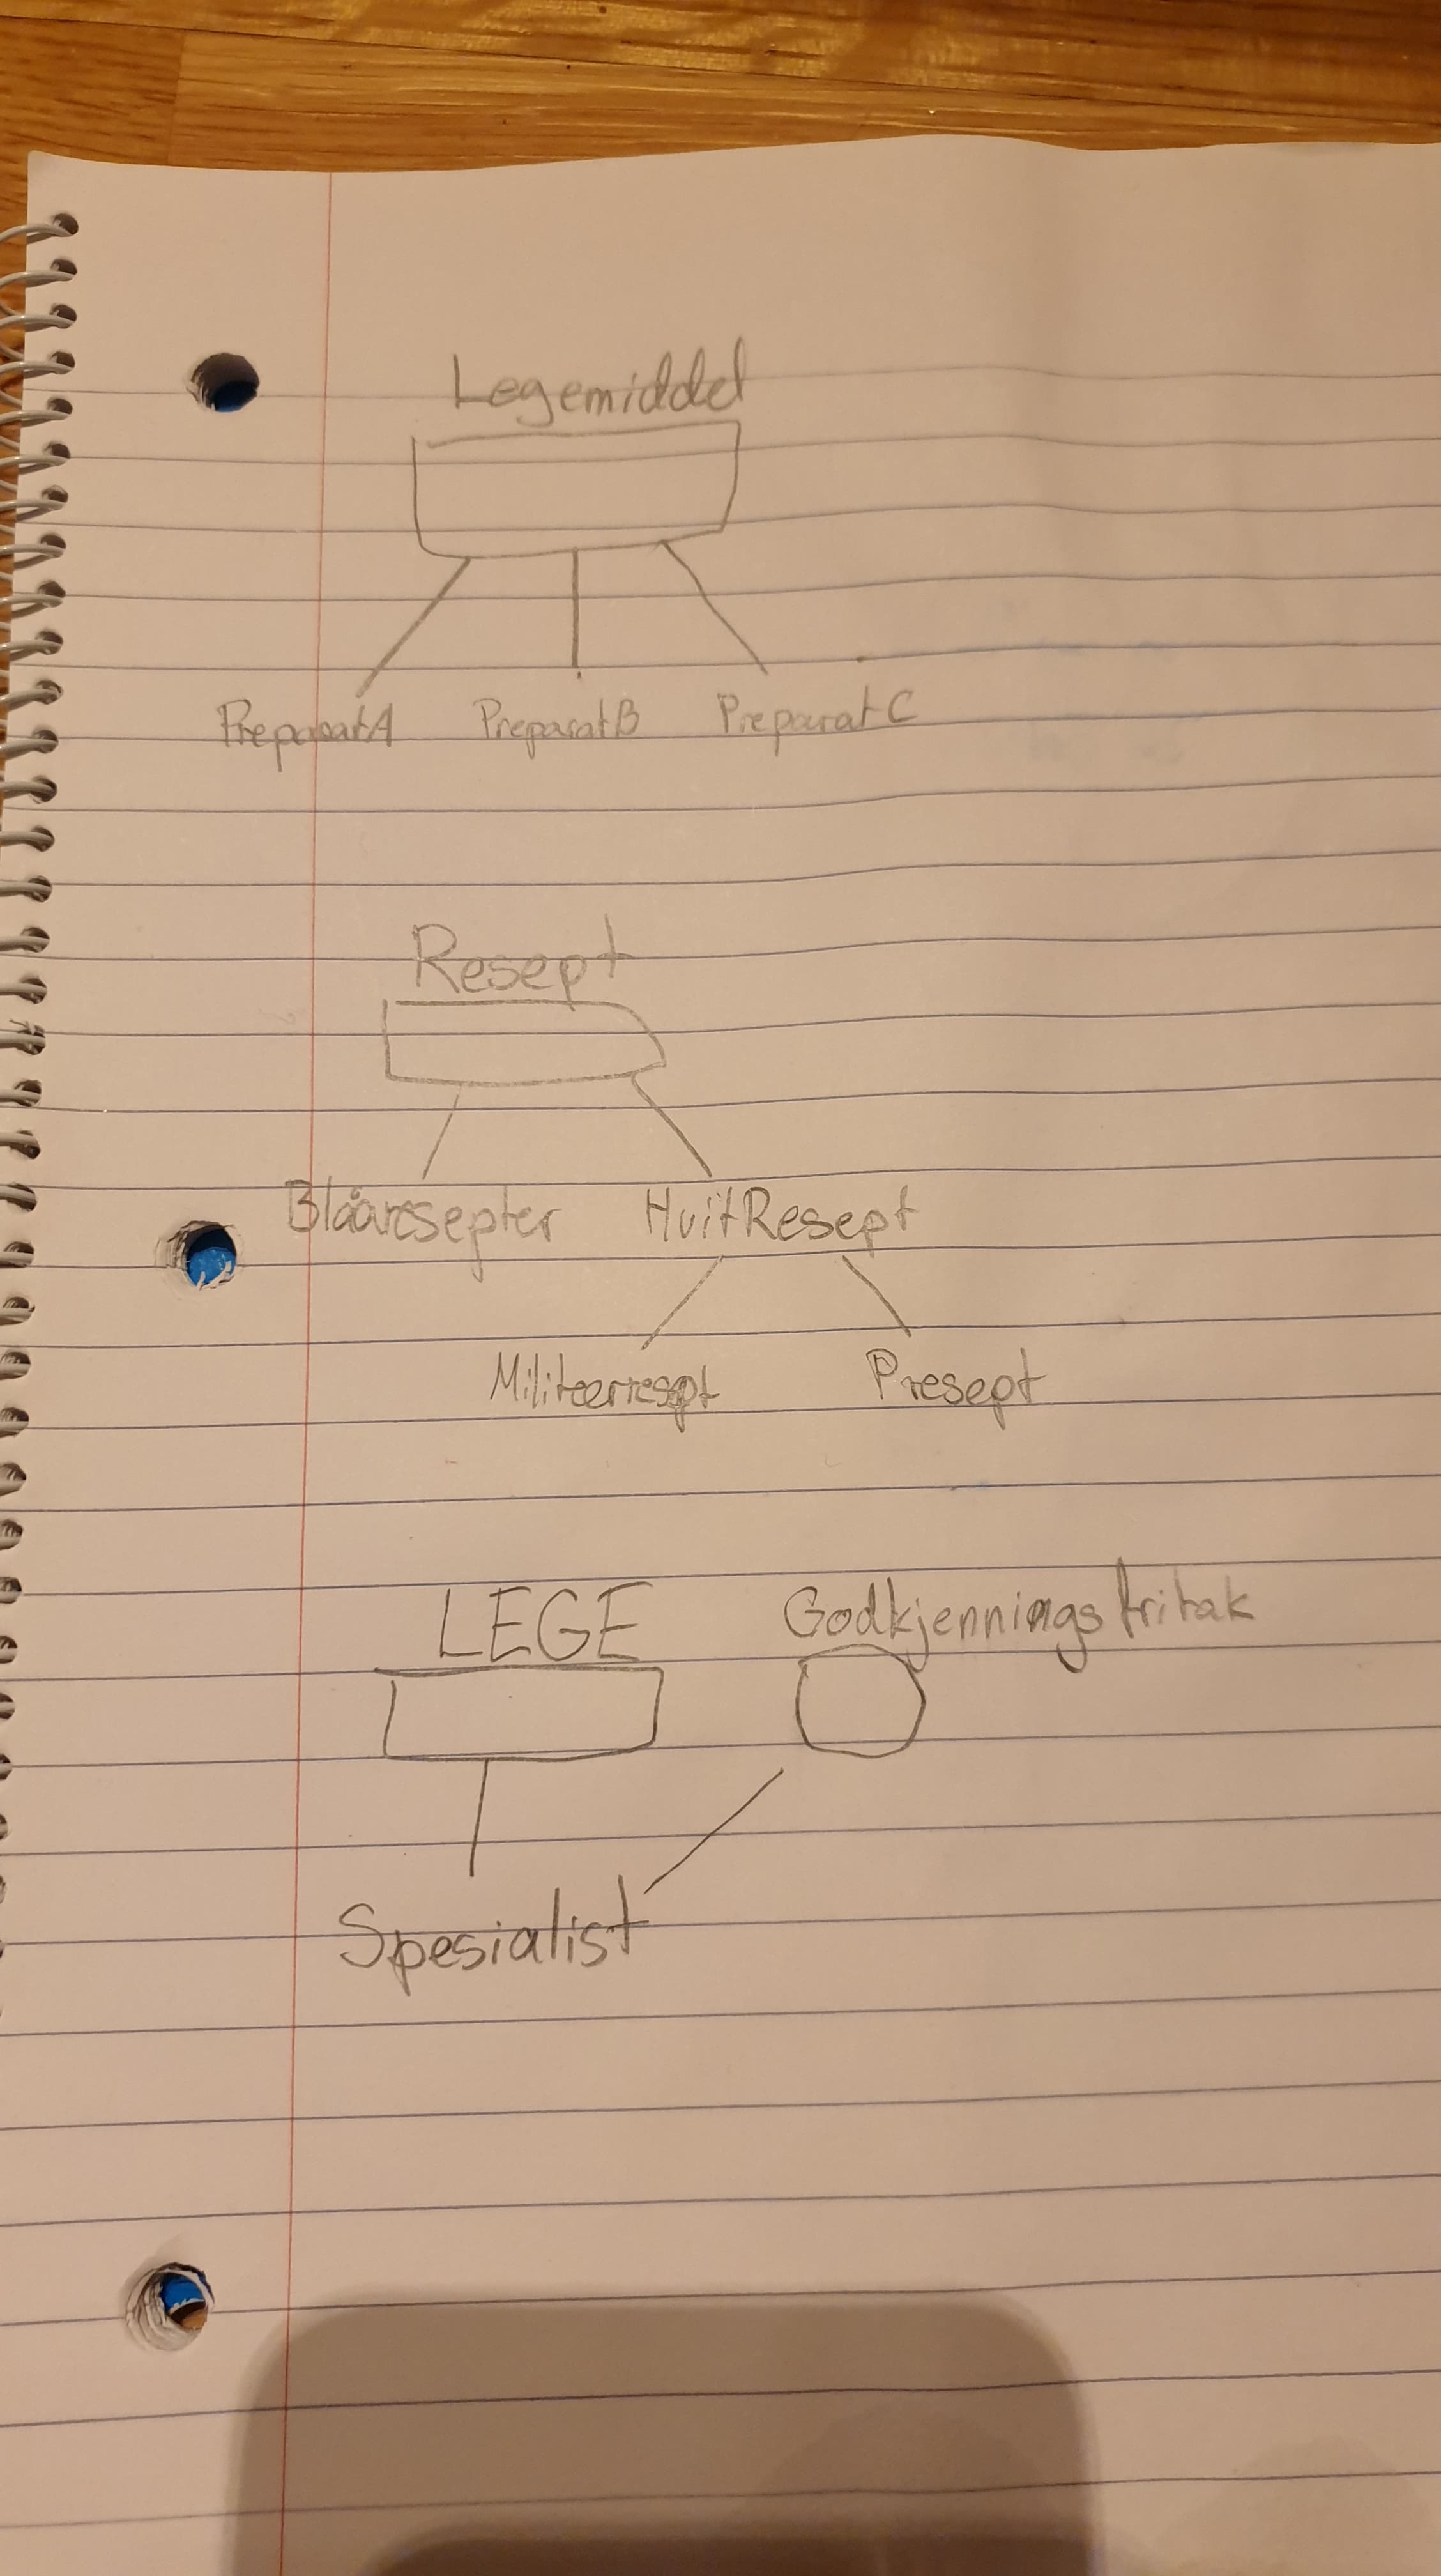 Legemiddel
PreparatA PreparatB Preparat C
Resept
Blåresepter HvitResept
Militærresept Presept
LEGE Godkjenningsfritak
Spesialist